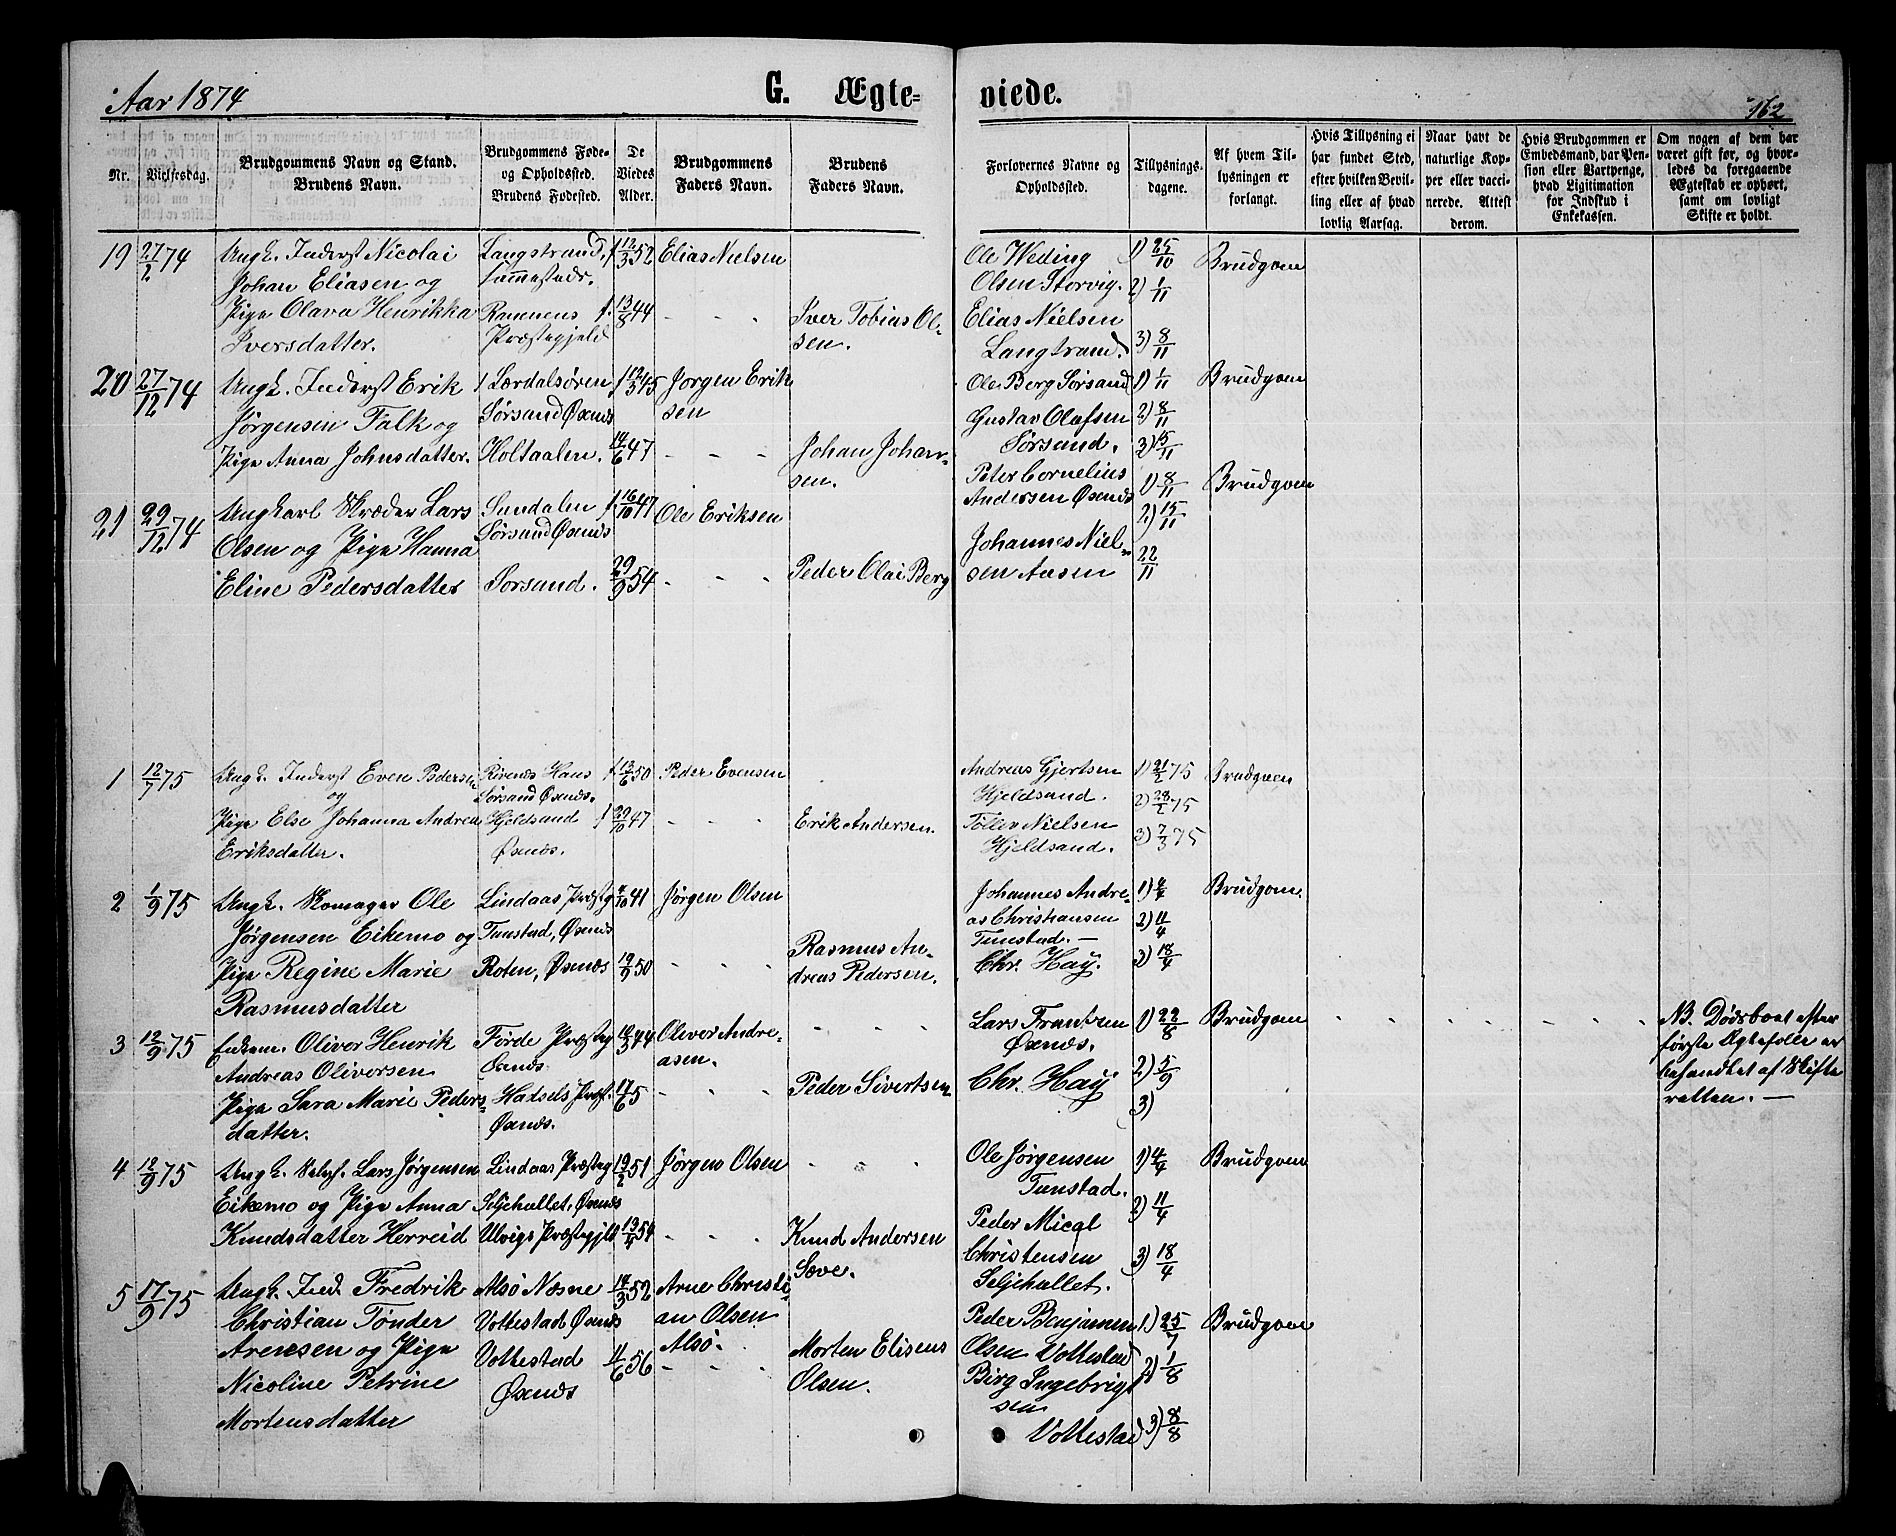 Aar 1874
G. Ægte-
viede.
162
Nr.
Vielsesdag.
Brudgommens Navn og Stand.
Brudens Navn.
Brudgommens Føde-
og Opholdssted.
Brudens Fødested.
De
Viedes
Alder.
Brudgommens
Faders Navn.
Brudens
Faders Navn.
Forlovernes Navne og
Opholdssted.
Tillysnings-
dagene.
Af hvem Til-
lysningen er
forlangt.
Hvis Tillysning ei
har fundet Sted,
efter hvilken Bevil-
ling eller af hvad
lovlig Aarsag.
Naar havt de
naturlige Kop-
per eller vacci-
nerede. Attest
derom.
Hvis Brudgommen er
Embedsmand, har Pen-
sion eller Vartpenge,
hvad Ligitimation
for Indskud i
Enkekassen.
Om nogen af dem har
været gift før, og hvor-
ledes da foregaaende
Ægteskab er ophørt,
samt om lovligt
Skifte er holdt.
19 27/2 74
Ungk. Inderst Nicolai
Johan Eliasen og
Pige Olava Henrikka
Iversdatter.
Langstrand,
sammesteds.
Ranens
Præstegjeld
12/3 52
13/8 44
Elias Nielsen
Iver Tobias Ol-
sen.
Ole Weding
Olsen Storvig.
Elias Nielsen
Langstrand.
1) 25/10
2) 1/11
3) 8/11
Brudgom
20 27/12 74
Ungk. Inderst Erik
Jørgensen Falk og
Pige Anna Johnsdatter.
Lærdalsøren
Sørsand Øxnes
Holtaalen.
12/3 45
14/6 47
Jørgen Erik
sen
Johan Johan-
sen.
Ole Berg Sørsand
Gustav Olafsen
Sørsand.
1) 1/11
2) 8/11
3) 15/11
Brudgom
21 29/12 74
Ungkarl Skræder Lars
Olsen og Pige Hanna
Eline Pedersdatter
Sundalen
Sørsand Øxnes
Sorsand.
16/10 47
29/9 54
Ole Eriksen
Peder Olai Berg
Peter Cornelius
Andersen Øxnes
Johannes Niel-
sen Aasen
1) 8/11
2) 15/11
22/11
Brudgom
1 12/7 75
Ungk. Inderst Even Pedersen
og
Pige Else Johanna Andrea
Eriksdatter.
Sørsand Øxnes.
Hjeldsand
Øxnes.
13/6 50
29/10 47
Peder Evensen
Erik Andersen.
Andreas Gjertsen
Hjeldsand.
Tollev Nielsen
Hjeldsand.
1) 21/2 75
2) 28/2 75
3) 7/3 75
Brudgom
2 1/9 75
Ungk. Skomager Ole
Jørgensen Eikemo og
Pige Regine Marie
Rasmusdatter
Lindaas Præsteg
Tunstad, Øxnes
Roten, Øxnes
41
12/9 50
Jørgen Olsen
Rasmus An-
dreas Pedersen.
Johannes Andre-
as Christiansen
Tunstad. —
Chr. Hay.
1) 4/4
2) 11/4
3) 18/4
Brudgom.
3 12/9 75
Enkem. Oliver Henrik
Andreas Oliversen
Pige Sara Marie Peders-
datter.
Førde Præsteg
Øxnes.
Hadsels Præst.
Øxnes.
44
17/6 5
Oliver Andre-
asen.
Peder Sivertsen
Lars Frantzen
Øxnes.
Chr. Hay
1) 22/8
2) 5/9
3)
Brudgom
NB. Dødsboet efter
første Ægtefælle er
behandlet af Skifte
retten. —
4 12/9 75
Ungk. Selvf. Lars Jørgensen
Eikemo og Pige Anna
Knudsdatter Herreid
Lindaas Præsteg
Seljehullet. Øxnes
Ulvigs Præstegjeld
19/2 51
54
Jørgen Olsen
Knud Andersen
Sæve.
Ole Jørgensen
Tunstad.
Peder Mical
Christensen
Seljehullet.
1) 4/4
2) 11/4
3) 18/4
Brudgom
5 17/9 75
Ungk. Ind. Fredrik
Christian Tønder
Arensen og Pige
Nicoline Petrine
Mortensdatter
Alsø Næsne
Vottestad Øxnes
Vottestad
Øxnes
14/3 52
11/6 56
Arne Christi-
an Olsen
Alsø.
Morten Elisens
Olsen.
Peder Benjamin
Olsen Vottestad
Birg Ingebrigt
sen
Vottestad
1.) 25/7
2) 1/8
3) 8/8
Brudgom